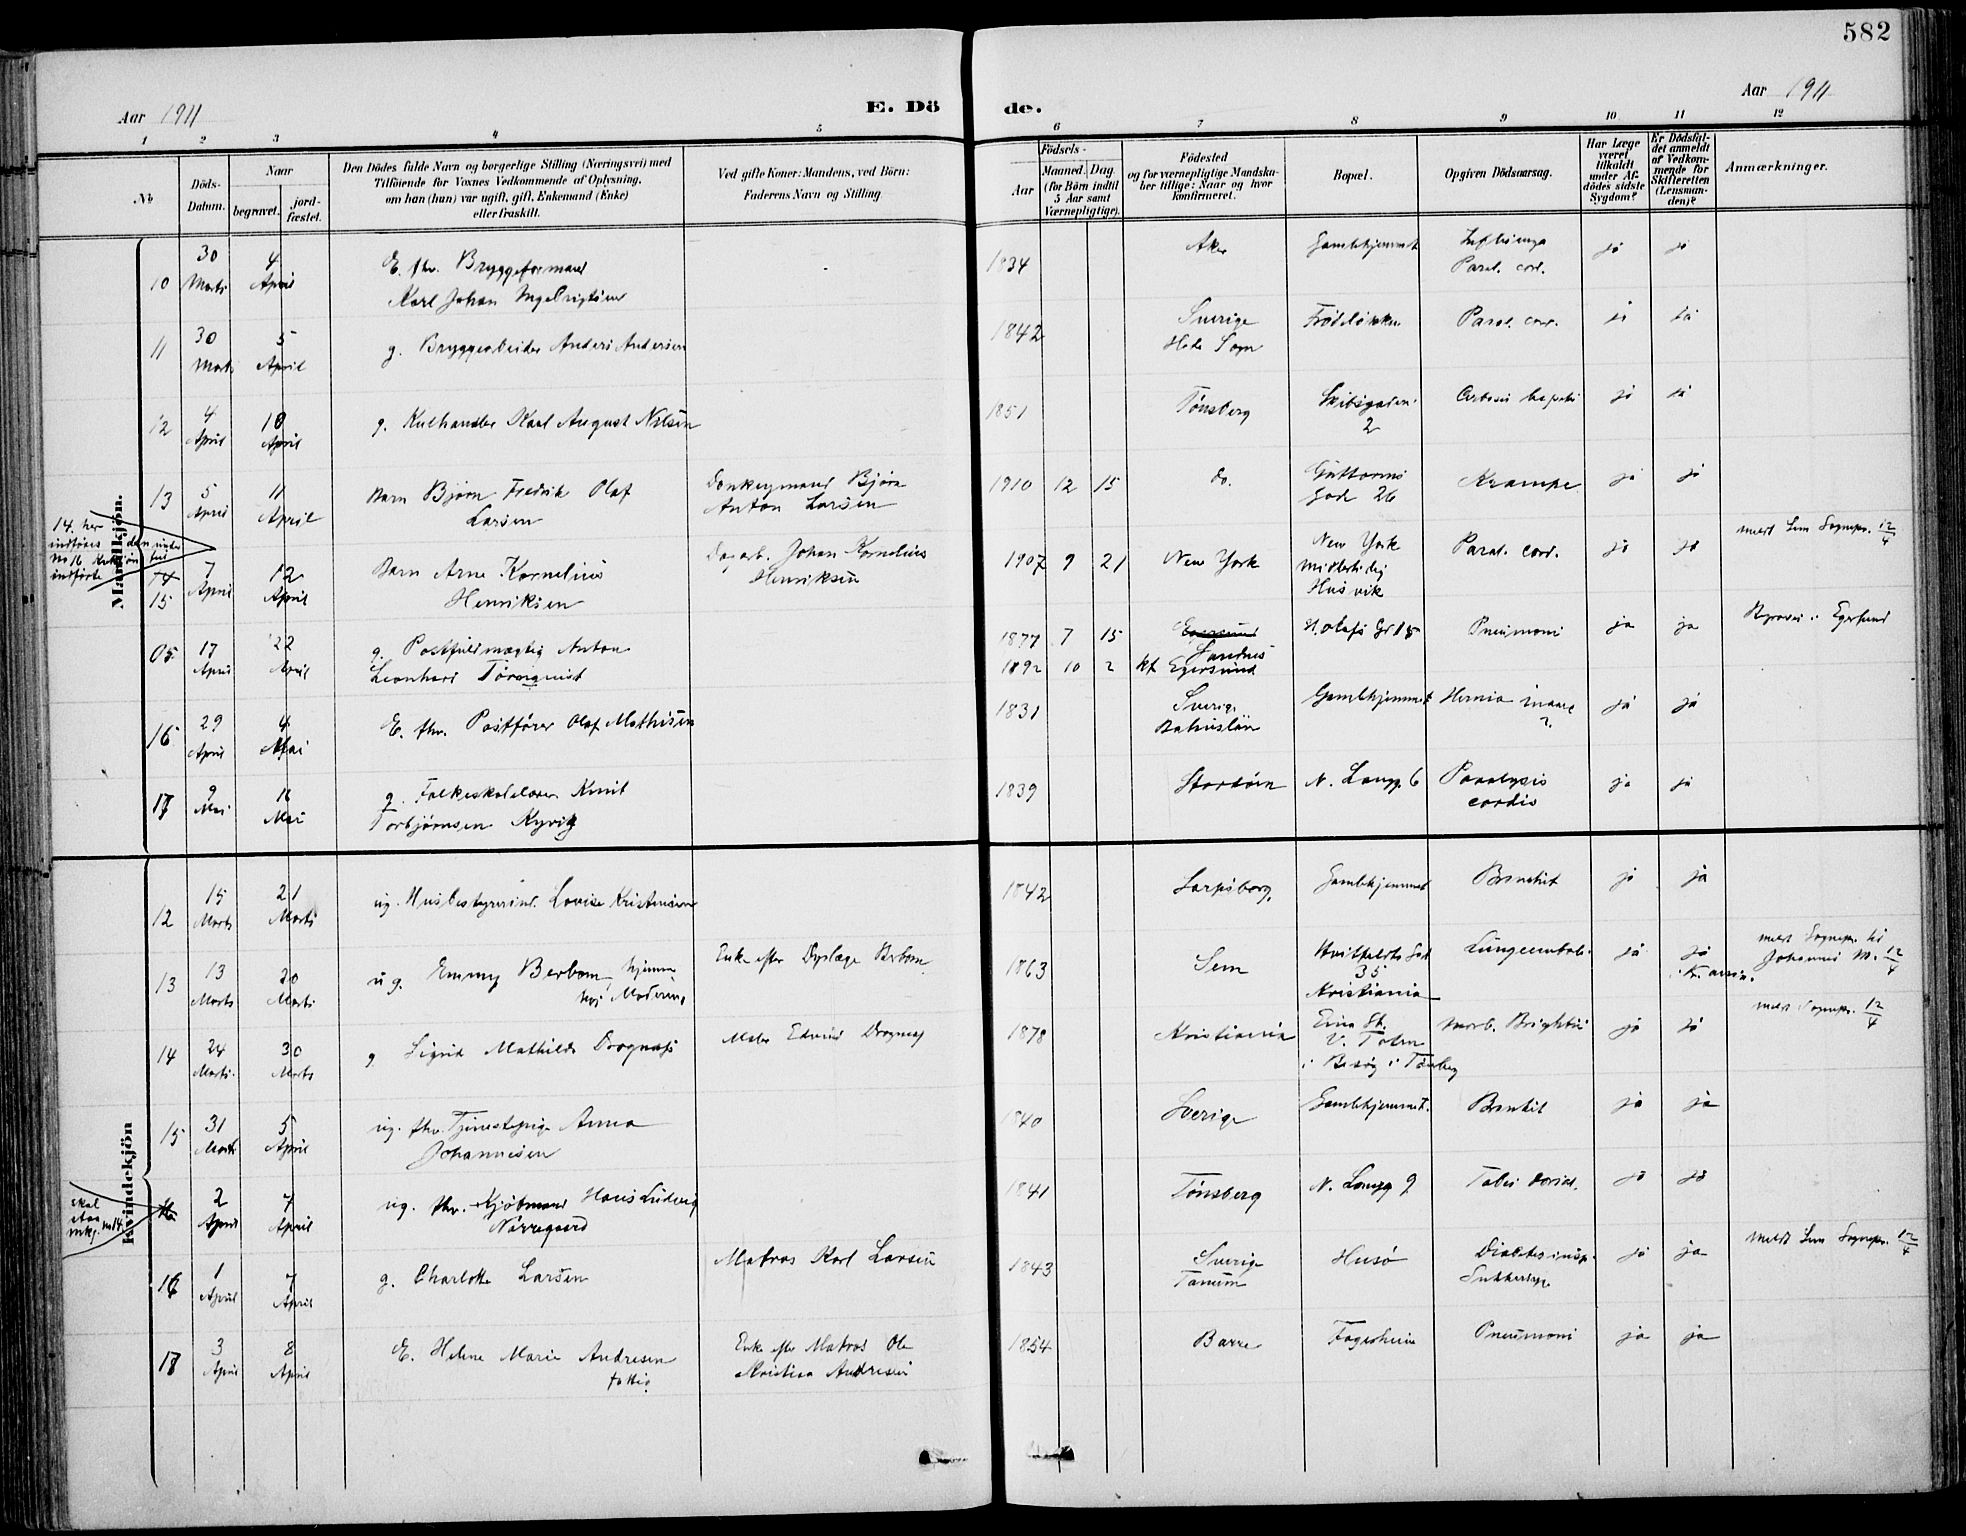 582
Aar 1911
E. Dö
de.
Aar 1911
1 2 3 4 5 6 7 8 9 10 11 12
No
Döds-
Datum.
Naar
begravet.
jord-
fæstet.
Den Dödes fulde Navn og borgerlige Stilling (Næringsvei) med
Tilföiende for Voxnes Vedkommende af Oplysning,
om han (hun) var ugift, gift, Enkemand (Enke)
eller fraskilt.
Ved gifte Koner: Mandens, ved Börn:
Faderens Navn og Stilling
Födsels-
Aar
Maaned. Dag.
(for Börn indtil
5 Aar samt
Værnepligtige).
Födested
og for værnepligtige Mandska-
ber tillige: Naar og hvor
konfirmeret.
Bopæl.
Opgiven Dödsaarsag.
Har Læge
været
tilkaldt
under Af-
dödes sidste
Sygdom?
Er Dödsfal-
det anmeldt
af Vedkom-
mende for
Skifteretten
(Lensman-
den)?
Anmærkninger.
Mandkjön.
10 30 Marts 4 April E. fhv. Bryggeformand
Karl Johan Ingebrigtsen
1834 Aker Gamlehjemmet Influenza
Paral. cord. ja ja
11 30 Marts 5 April g. Bryggearbeider Anders Andersen
1842 Sverige
Hede Sogn Paral. cord. ja ja
12 4 April 10 April g. Kulhandler Karl August Nilsen
1851 Tönsberg Skibsgaden
2 ja ja
13 5 April 11 April Barn Björn Fredrik Olaf
Larsen
Donkeymand Björn
Anton Larsen
1910 12 15 do. Guttorms
Gade 26 Krampe ja ja
14. her
indföres den under
No 16 Kvkjön
indförte
14
15 7 April 12 April Barn Arne Kornelius
Henriksen
Dagarb. Johan Kornelius
Henriksen
1907 9 21 New York New York
midlertidig
Husvik Paral. cord. ja ja meldt Sem Sognepr. 12/4
17 April 22 April g. Postfuldmægtig Anton
Leonhard Törnquist
1877 7 15 Egersund
Sandnes
1892 10 2 kf Egersund St. Olafs Gd 15 Pneumoni ja ja Egersund
16 29 April 4 Mai E. fhv. Postförer Olaf Mathisen
1831 Sverige
Bahuslän Gamlehjemmet Hernia ja ja
17 9 Mai Mai g. Folkeskolelærer Knut
Torbjörnsen Kyvig
1839 Stordöen N. Langg. 6 Paralysis
cordis ja ja
Kvindekjön
12 15 Marts 21 Marts ug. Husbestyrerind. Lovise Kristensen
1842 Sarpsborg. Gamlehjemmet Bronkit ja ja
13 13 Marts 20 Marts ug. Emmy Berbom, hjemme
hos Moderen
Enke efter Dyrlæge Berbom
1863 Sem Hvitfeldts Gd
35
Kristiania Lungeemboli ja ja meldt Sognepr. til
Johannes M. 12/4
14 24 Marts 30 Marts g Sigrid Mathilde
Maler Edvard
1878 Kristiania Eina St.
V. Toten
i Besög i Tönsberg Morb. Brightii ja ja meldt Sognepr. 12/4
15 31 Marts 5 April ug. fhv. Tjenestepige Anna
Johannesen
1840 Sverige Gamlehjemmet. Bronkit ja ja
skal
staa
mkj. no 14
16 2 April 7 April ug. fhv. Kjöbmand Hans Ludvig
Nörregaard
1841 Tönsberg N. Langg 9 Tabes dorsal. ja ja
16 1 April 7 April g. Charlotte Larsen
Matros Karl Larsen
1843 Sverige
Tanum Husö Diabetes insip.
Sukkersyge ja ja meldt Sem Sognepr. 12/4
17 3 April 8 April E. Helene Marie Andresen
fattig
Enke efter Matros Ole
Kristian Andresen
1854 Borre Fagerheim Pneumoni ja ja